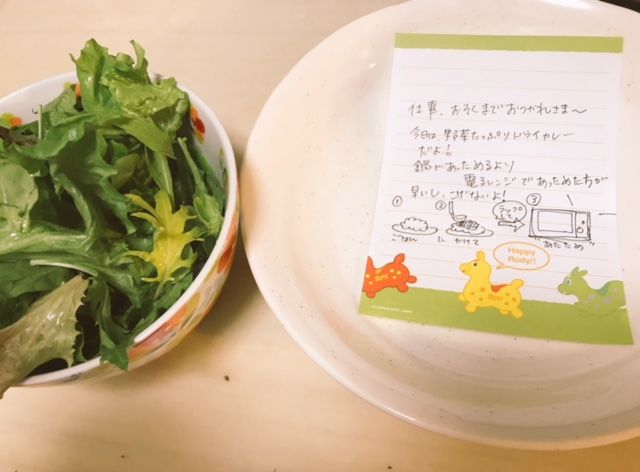 仕事、おそくまでおつかれさま〜
今日は、野菜たっぷりドライカレー
だよ!
鍋であっためるより
電子レンジであっためた方が
早いし、こげないよ!
① ② ラップして ③
ごはん に かけて "あたため"
Happy
Rody!!